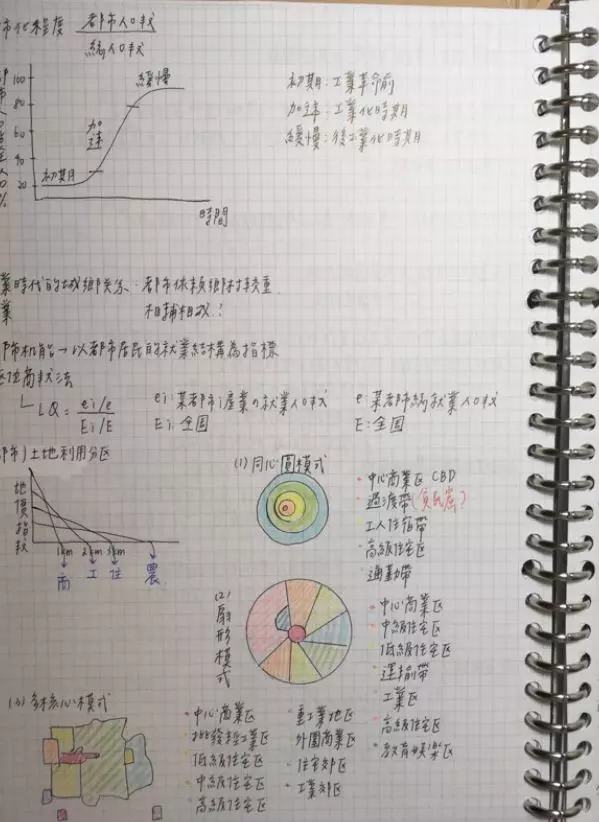 市化程度 都市人口数
總人口数
100
80
60
40
20
緩慢
加速
初期
時間
初期：工業革命前
加速：工業化時期
緩慢：後工業化時期
業時代的城鄉关系：都市依賴鄉村較重
業 相輔相成！
市机能→以都市居民的就業結構為指標
区位商数法
LQ = ei/e / Ei/E
ei：某都市i產業の就業人口数
Ei：全国
e：某都市總就業人口数
E：全国
都市)土地利用分区
地價指数
1km 2km 3km
商 工 住 農
(1) 同心圓模式
中心商業区 CBD
過渡帶(貧民窟?)
工人住宿帶
高級住宅区
通勤帶
(2) 扇形模式
中心商業区
中級住宅区
低級住宅区
運輸帶
工業区
高級住宅区
教育娛樂区
(3) 多核心模式
中心商業区
批發輕工業区
低級住宅区
中級住宅区
高級住宅区
重工業地区
外圍商業区
住宅郊区
工業郊区